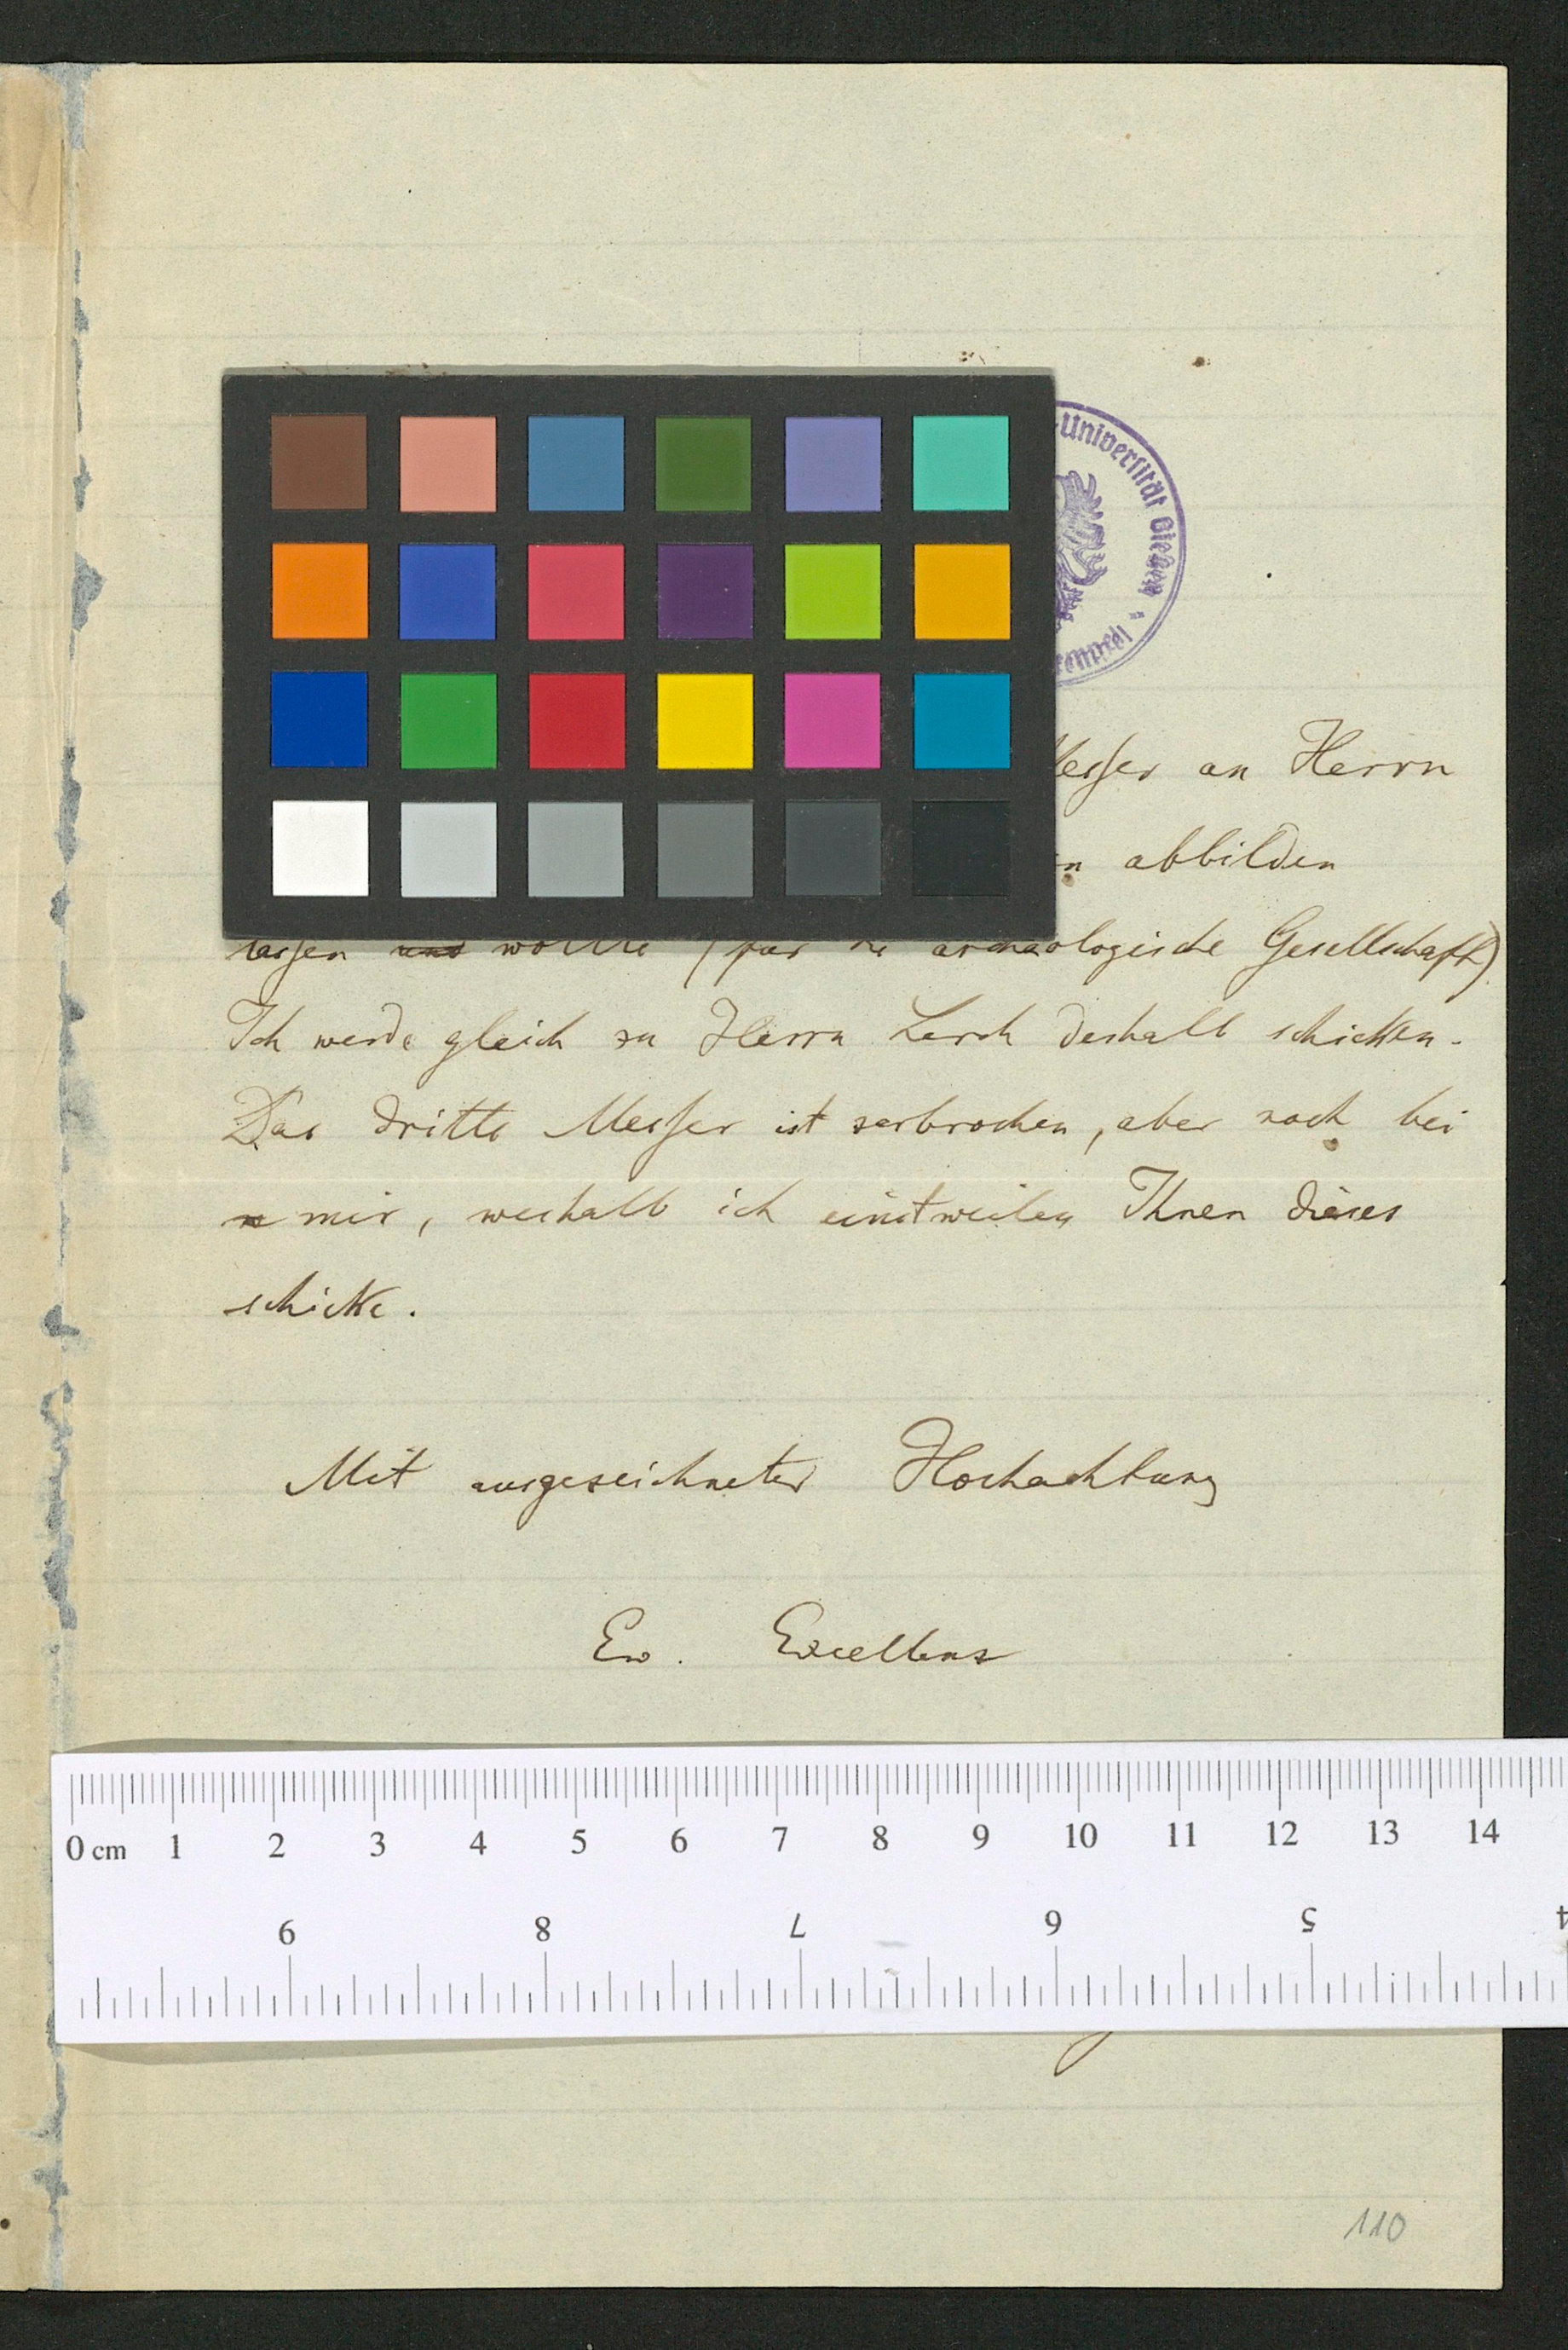 Universität Gießen
Messer an Herrn
abbilden
lassen und wollte (für die archäologische Gesellschaft)
Ich werde gleich zu Herrn Lerch deshalb schicken.
Das dritte Messer ist zerbrochen, aber noch bei
mir, weshalb ich einstweilen Ihnen dieses
schicke.
Mit ausgezeichneter Hochachtung
Ew. Excellenz
0 cm 1 2 3 4 5 6 7 8 9 10 11 12 13 14
9 8 7 6 5 4
110